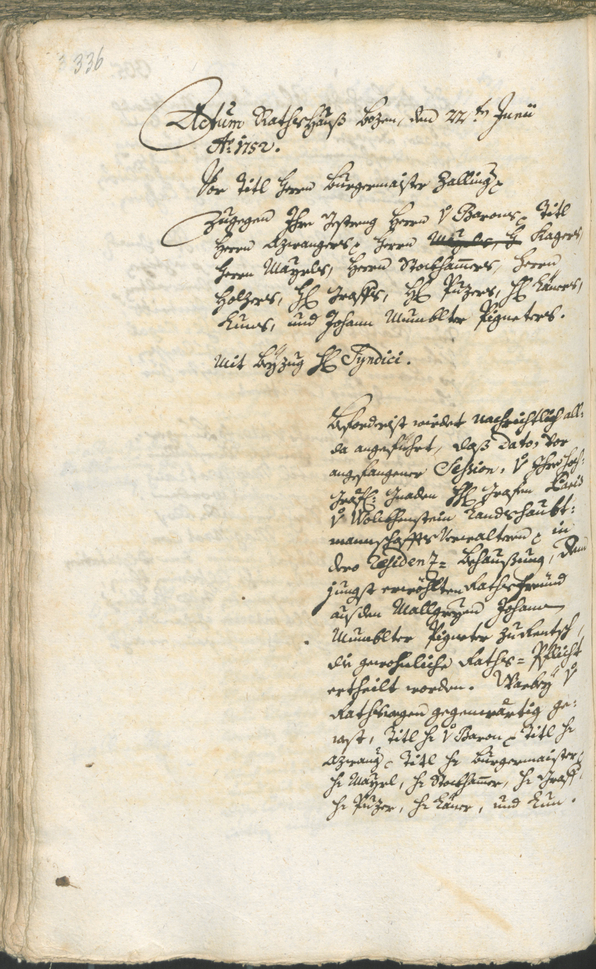 336
Actum Rathshauß Bozen, den 22.ten Junii
A: 1752.
Vor Titl Herrn Burgermaister Zallinger
Zugegen Ihro Gestreng Herrn v Barons, Titl
Herrn Azwangers, Herrn Kagers,
Herrn Mayrls, Herrn Stockhamers, Herrn
Holzers, H: Graffs, H: Puzers, H: Käners,
Kuns, und Johann Mumblter Pigneters.
Mit beyzug H: Syndici.
Beforderist wirdet nachrichtlich all-
da angeführt, daß dato, vor
angefangener Session, v Ihro hoch-
gräfl: Gnaden H: Grafen
v Wolckhenstein Landtshaubt-
mannschaffts Verwaltern in
dero Residenz-Behaußung, dem
jungst erwöhlten Rathsfreund
auß den Mallgreyen Johann
Mumblter Pigneter zu Rentsch,
die gewohnliche Raths-Pflicht
ertheilt worden. Warbey v
Rathswegen gegenwärtig ge-
west, Titl H: v Baron, Titl H:
Azwang, Titl H: Burgermaister,
H: Mayrl, H: Stockhamer, H: Graff,
H: Puzer, H: Käner, und Kun.